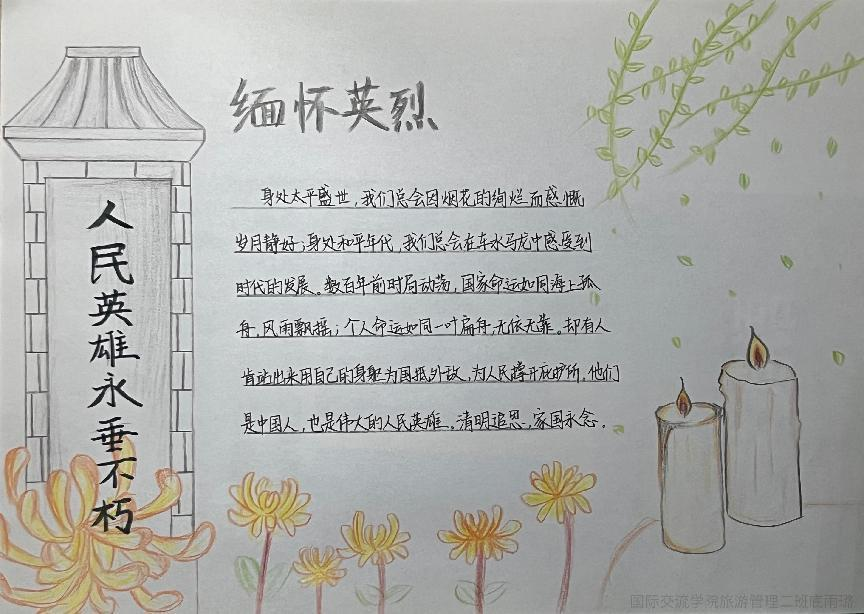 缅怀英烈
人民英雄永垂不朽
身处太平盛世,我们总会因烟花的绚烂而感慨
岁月静好;身处和平年代,我们总会在车水马龙中感受到
时代的发展。数百年前时局动荡,国家命运如同海上孤
舟,风雨飘摇;个人命运如同一叶扁舟,无依无靠。却有人
肯站出来用自己的身躯为国抵外敌,为人民撑开庇护所,他们
是中国人,也是伟大的人民英雄。清明追思,家国永念。
国际交流学院旅游管理二班底雨璐